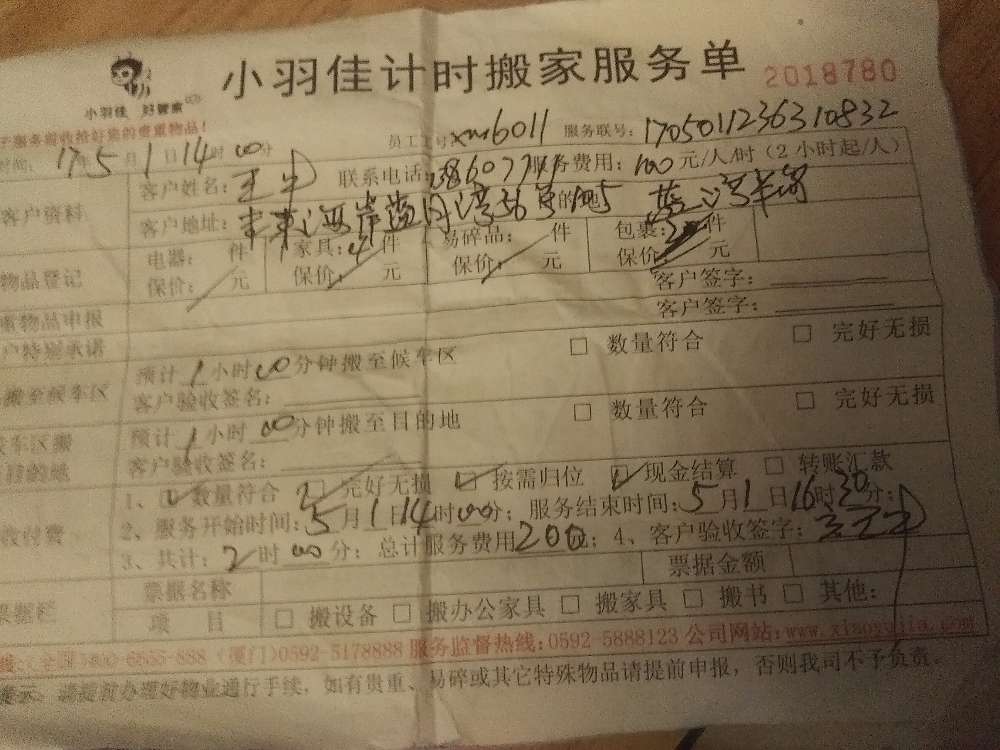 小羽佳计时搬家服务单 2018780
小羽佳 好管家
服务前收拾好您的贵重物品!
员工工号xm6011 服务联号:1705011236310832
时间:17年5月1日14时00分
客户资料 客户姓名:王 联系电话: 服务费用:100元/人/时(2小时起/人)
客户地址:未来海岸蓝月湾36号105 的地
物品登记 电器: 件 家具:4件 易碎品: 件 包裹: 件
保价: 元 保价: 元 保价: 元 保价: 元
物品申报 客户签字:
户特别承诺 客户签字:
搬至候车区 预计1小时00分钟搬至候车区 □ 数量符合 □ 完好无损
客户验收签名:
候车区搬 预计1小时00分钟搬至目的地 □ 数量符合 □ 完好无损
目的地 客户验收签名:
1、☑数量符合 ☑完好无损 ☑按需归位 ☑现金结算 □ 转账汇款
收付费 2、服务开始时间:5月1日14时00分;服务结束时间:5月1日16时30分;
3、共计:2时00分;总计服务费用200元;4、客户验收签字:
票据栏 票据名称 票据金额
项 目 □ 搬设备 □ 搬办公家具 □ 搬家具 □ 搬书 □ 其他:
(厦门)0592-5178888 服务监督热线:0592-5888123 公司网站:www.xiaoyujia.com
提示:请提前办理好物业通行手续,如有贵重、易碎或其它特殊物品请提前申报,否则我司不予负责。